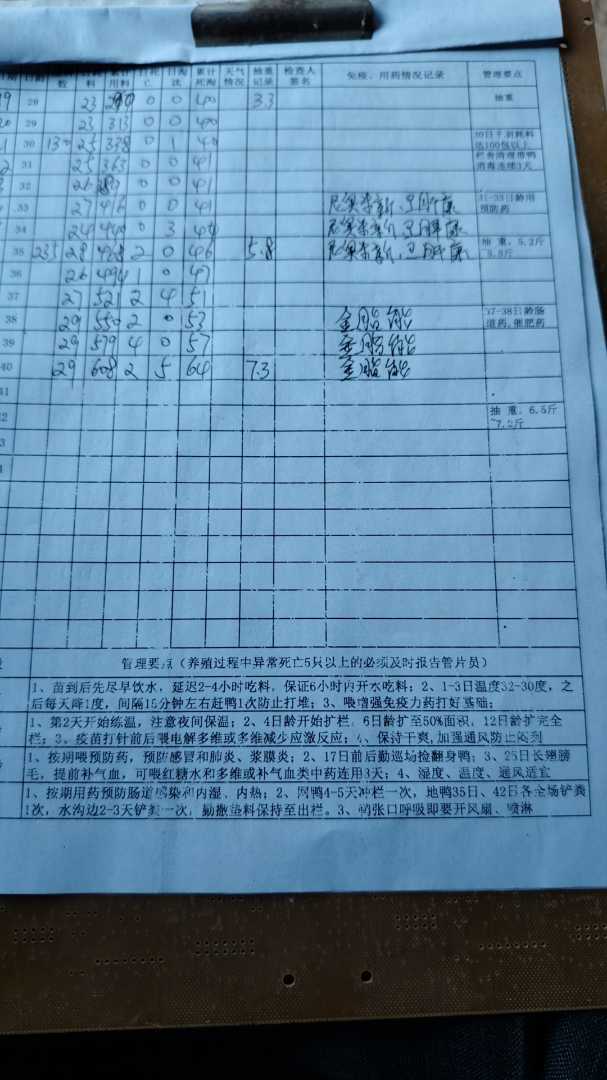 数 料 用料 亡 汰 累计死淘 天气情况 抽重记录 检查人签名 免疫、用药情况记录 管理要点
28 23 0 0 40 33 抽重
29 23 313 0 0 40
30 130 25 338 0 1 40 30日千羽耗料达100包以上
31 25 363 0 0 41 栏舍清理带鸭消毒连续3天
32 26 0 0 41
33 27 416 0 0 41 31-33日龄用预防药
34 24 440 0 3 44
35 235 28 468 2 0 46 5.8 抽重，5.2斤
36 26 494 1 0 47
37 27 521 2 4 51
38 29 550 2 0 53 金脂能 37-38日龄肠道药、催肥药
39 29 579 4 0 57 金脂能
40 29 608 2 5 64 7.3 金脂能
41
抽重，6.5斤
~7.2斤
管理要点（养殖过程中异常死亡5只以上的必须及时报告管片员）
1、苗到后先尽早饮水，延迟2-4小时吃料，保证6小时内开水吃料；2、1-3日温度32-30度，之
后每天降1度，间隔15分钟左右赶鸭1次防止打堆；3、喂增强免疫力药打好基础；
1、第2天开始练温，注意夜间保温；2、4日龄开始扩栏，6日龄扩至50%面积，12日龄扩完全
栏；3、疫苗打针前后喂电解多维或多维减少应激反应；4、保持干爽，加强通风防止闷烈
1、按期喂预防药，预防感冒和肺炎、浆膜炎；2、17日前后勤巡场捡翻身鸭；3、25日长翅膀
毛，提前补气血，可喂红糖水和多维或补气血类中药连用3天；4、湿度、温度、通风适宜
1、按期用药预防肠道感染和内湿、内热；2、网鸭4-5天冲栏一次，地鸭35日、42日各全场铲粪
1次，水沟边2-3天铲粪一次，勤撒垫料保持至出栏。3、鸭张口呼吸即要开风扇、喷淋